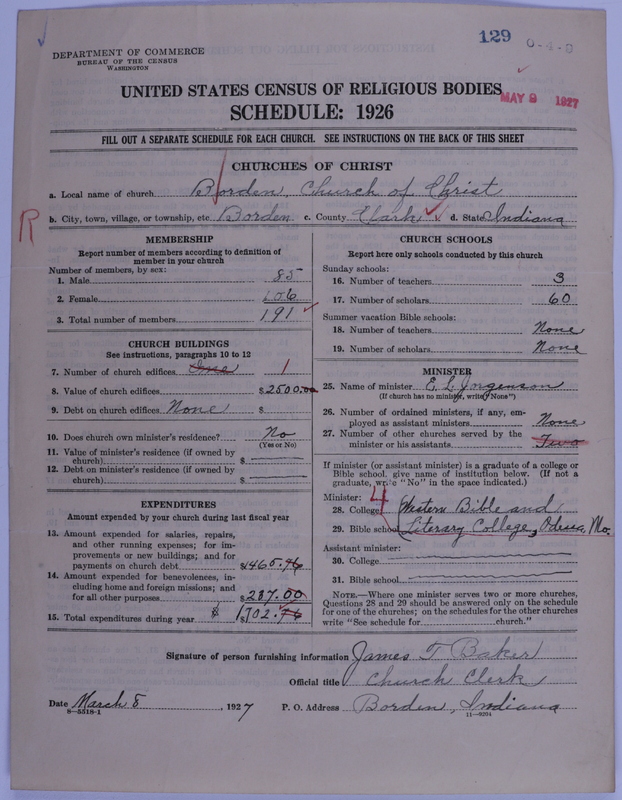 129 0-4-0
DEPARTMENT OF COMMERCE
BUREAU OF THE CENSUS
WASHINGTON
UNITED STATES CENSUS OF RELIGIOUS BODIES
MAY 9 1927
SCHEDULE: 1926
FILL OUT A SEPARATE SCHEDULE FOR EACH CHURCH. SEE INSTRUCTIONS ON THE BACK OF THIS SHEET
CHURCHES OF CHRIST
a. Local name of church Borden, Church of Christ
R
b. City, town, village, or township, etc Borden c. County Clark d. State Indiana
MEMBERSHIP
Report number of members according to definition of
member in your church
Number of members, by sex:
1. Male 85
2. Female 106
3. Total number of members 191
CHURCH BUILDINGS
See instructions, paragraphs 10 to 12
7. Number of church edifices One 1
8. Value of church edifices $2500.00
9. Debt on church edifices None $
10. Does church own minister's residence? No
(Yes or No)
11. Value of minister's residence (if owned by
church) $
12. Debt on minister's residence (if owned by
church) $
EXPENDITURES
Amount expended by your church during last fiscal year
13. Amount expended for salaries, repairs,
and other running expenses; for im-
provements or new buildings; and for
payments on church debt $
14. Amount expended for benevolences, in-
cluding home and foreign missions; and
for all other purposes $287.00
15. Total expenditures during year $ 1702.
CHURCH SCHOOLS
Report here only schools conducted by this church
Sunday schools:
16. Number of teachers 3
17. Number of scholars 60
Summer vacation Bible schools:
18. Number of teachers None
19. Number of scholars None
MINISTER
25. Name of minister E. L. Jorgenson
(If church has no minister, write "None")
26. Number of ordained ministers, if any, em-
ployed as assistant ministers None
27. Number of other churches served by the
minister or his assistants Two
If minister (or assistant minister) is a graduate of a college or
Bible school, give name of institution below. (If not a
graduate, write "No" in the space indicated.)
Minister: 4
28. College Western Bible and
29. Bible school Literary College, Odessa, Mo.
Assistant minister:
30. College
31. Bible school
NOTE.—Where one minister serves two or more churches,
Questions 28 and 29 should be answered only on the schedule
for one of the churches; on the schedules for the other churches
write "See schedule for church."
Signature of person furnishing information James T Baker
Official title Church Clerk
Date March 8, 1927 P. O. Address Borden, Indiana
8—5518-1 11—9204